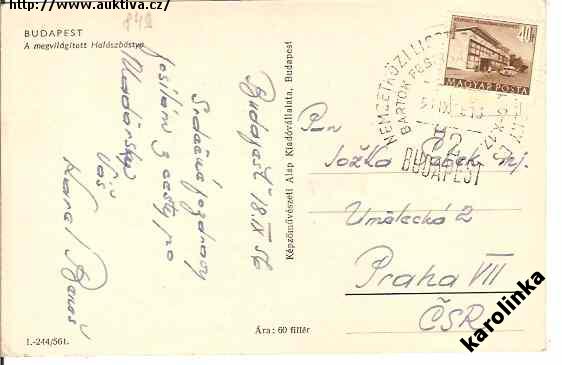 http://www.auktiva.cz/
842
BUDAPEST
A megvilágított Halászbástya
Budapešť 18.IX 56
Srdečné pozdravy
posílám z cesty po
Maďarsku
Váš
Karel
Képzőművészeti Alap Kiadóvállalata, Budapest
40f
MAGYAR POSTA
NEMZETKÖZI LISZT
BARTÓK FES
BUDAPEST
62
Pan
Jožka
Umělecká 2
Praha VII
ČSR
1.-244/561.
Ára: 60 fillér
karolinka